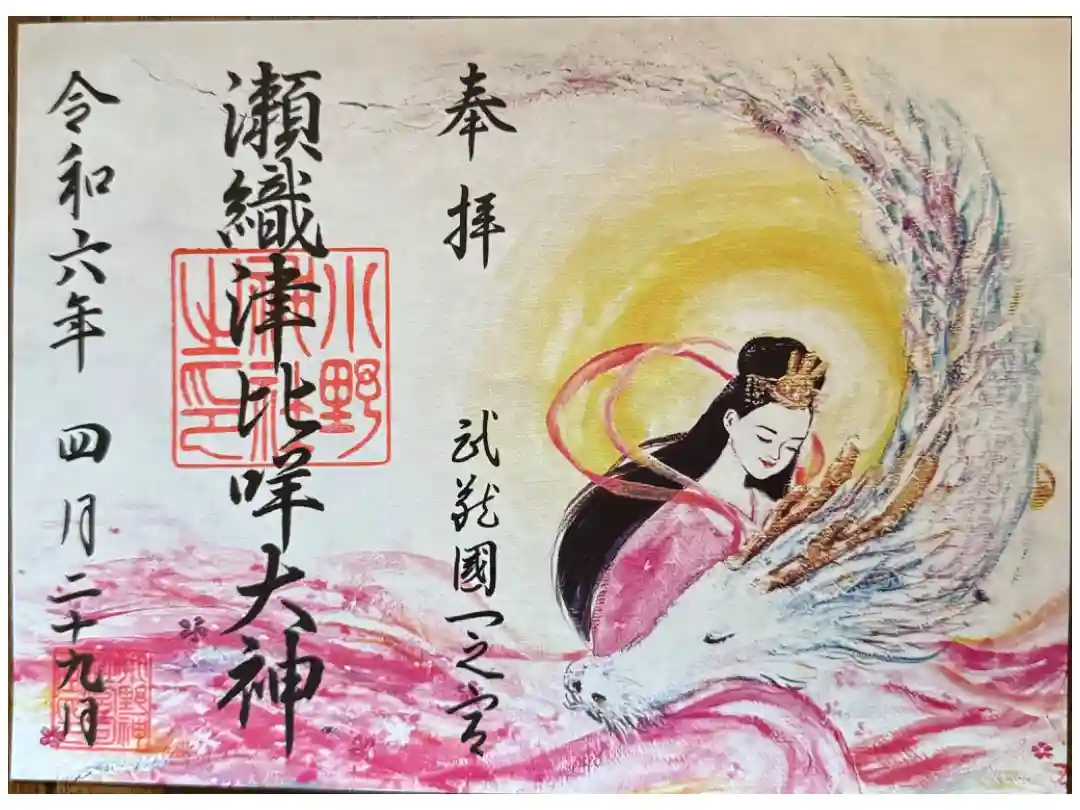 奉拝
武蔵國一之宮
瀬織津比咩大神
小野神社之印
令和六年 四月二十九日